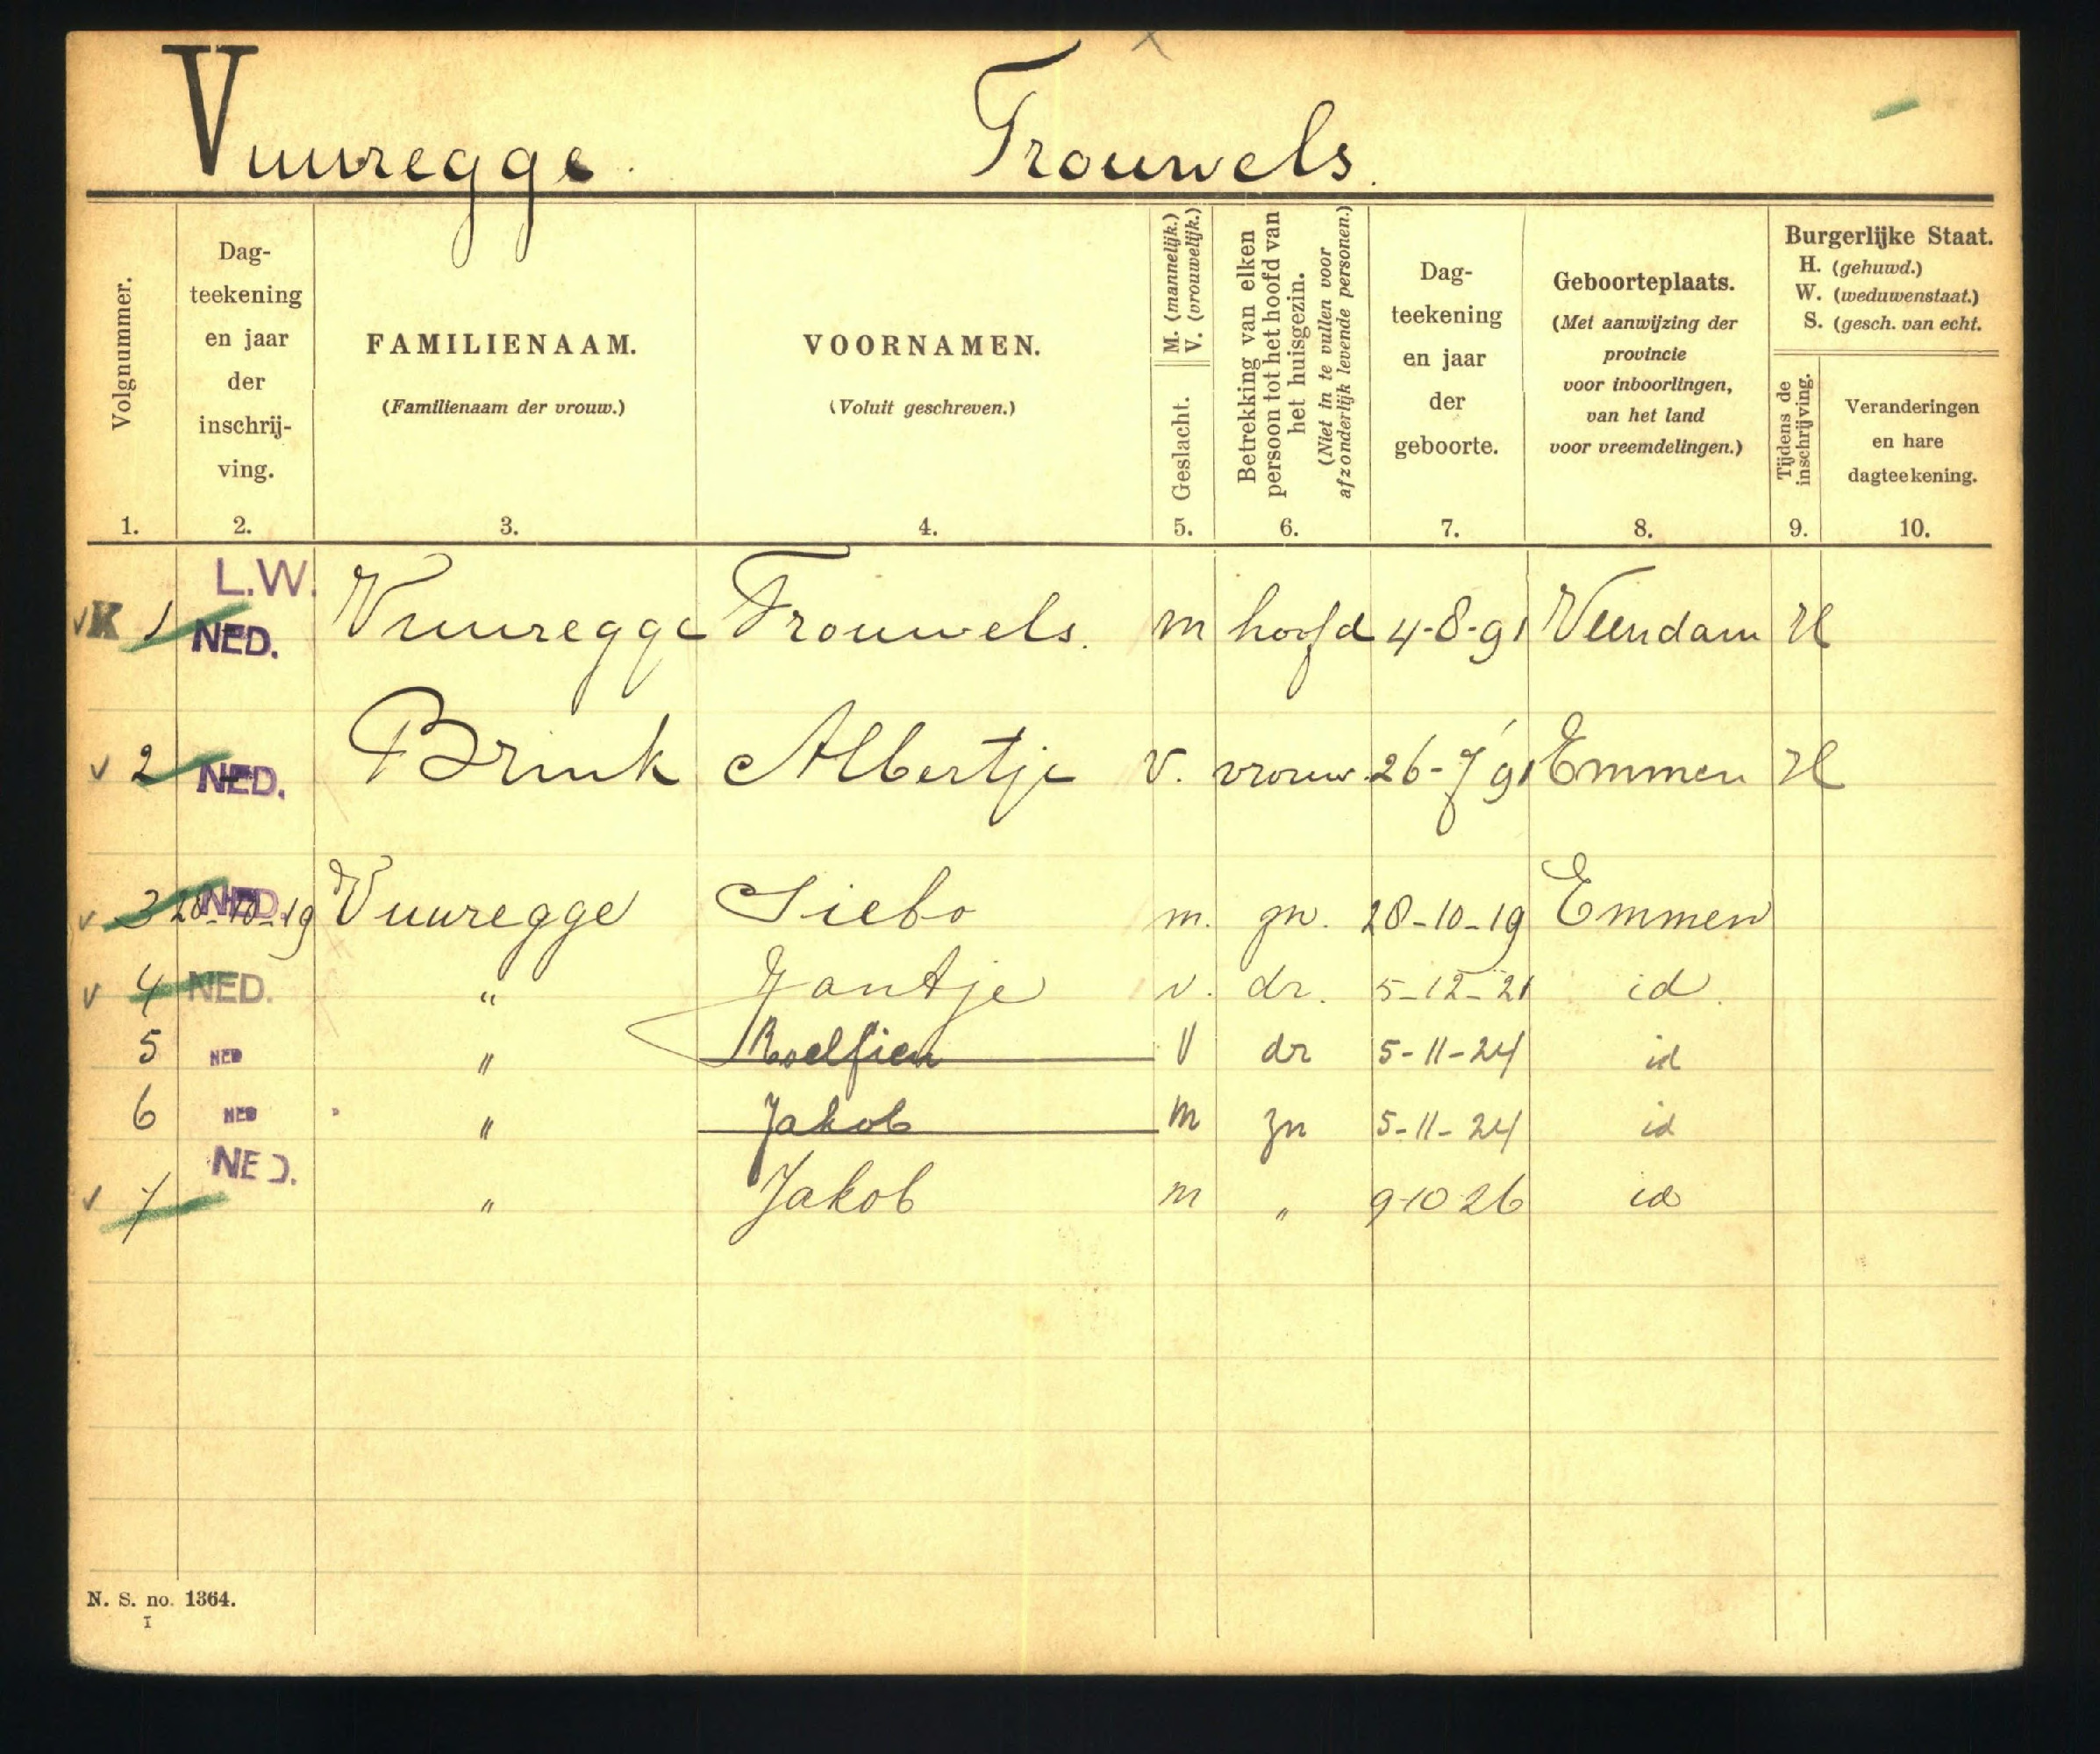 Vuuregge. Trouwels.
Volgnummer.
1.
Dag-
teekening
en jaar
der
inschrij-
ving.
2.
FAMILIENAAM.
(Familienaam der vrouw.)
3.
VOORNAMEN.
(Voluit geschreven.)
4.
M. (mannelijk.)
V. (vrouwelijk.)
Geslacht.
5.
Betrekking van elken
persoon tot het hoofd van
het huisgezin.
(Niet in te vullen voor
afzonderlijk levende personen.)
6.
Dag-
teekening
en jaar
der
geboorte.
7.
Geboorteplaats.
(Met aanwijzing der
provincie
voor inboorlingen,
van het land
voor vreemdelingen.)
8.
Burgerlijke Staat.
H. (gehuwd.)
W. (weduwenstaat.)
S. (gesch. van echt.
Tijdens de
inschrijving.
9.
Veranderingen
en hare
dagteekening.
10.
L.W.
K 1 NED. Vuuregge Trouwels. m hoofd 4-8-91 Veendam H
2 NED. Brink Albertje v. vrouw 26-7'91 Emmen H
3 NED. 28-10-19 Vuuregge Siebo m. zn. 28-10-19 Emmen
4 NED. " Jantje v. dr. 5-12-21 id.
5 NED " Roelfien V dr 5-11-24 id
6 NED " Jakob m zn 5-11-24 id
7 NED. " Jakob m " 9-10 26 id
N. S. no. 1364.
I